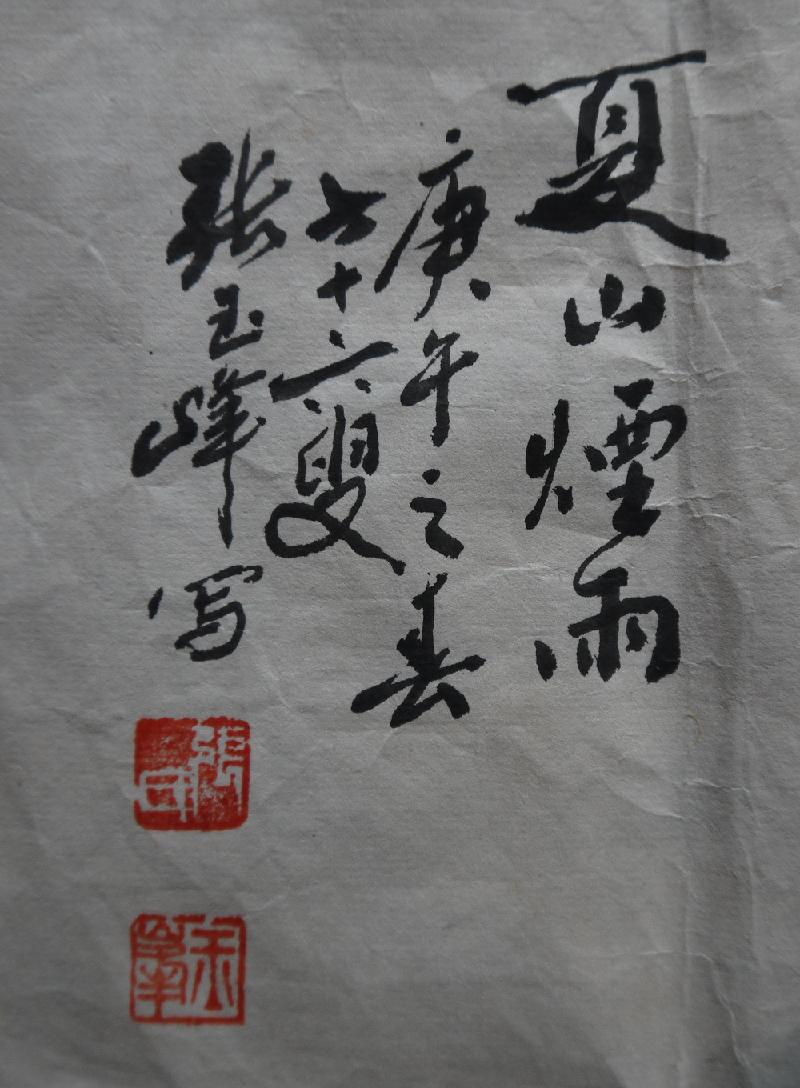 夏山煙雨
庚午之春
七十六叟
张玉峰写